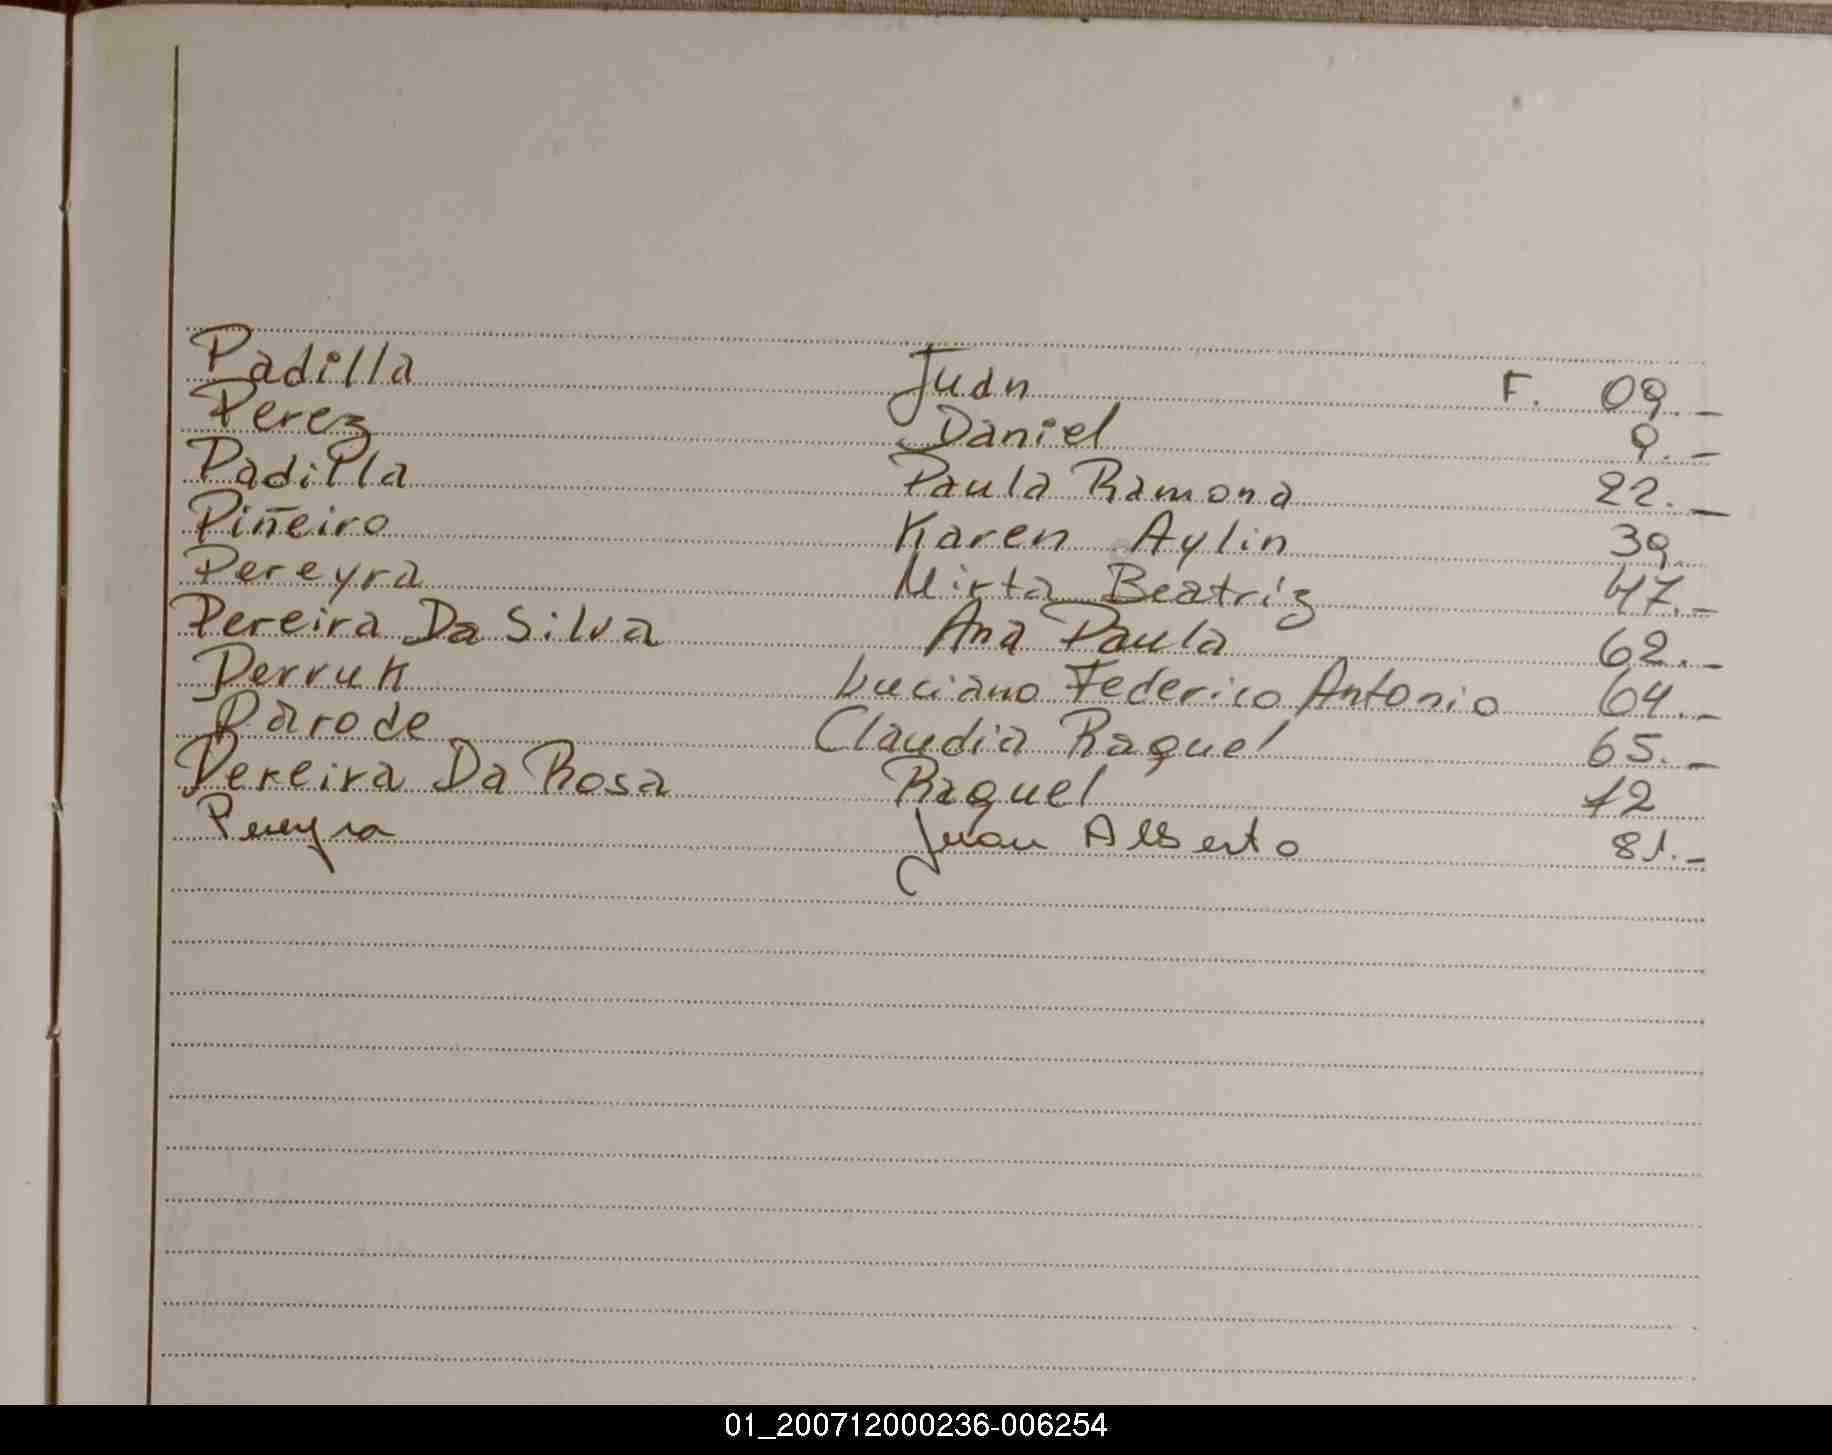 Padilla Juan F. 09.-
Perez Daniel 9.-
Padilla Paula Ramona 22.-
Piñeiro Karen Aylin 39.
Pereyra Mirta Beatriz 47.-
Pereira Da Silva Ana Paula 62.-
Perruk Luciano Federico Antonio 64.-
Parode Claudia Raquel 65.-
Pereira Da Rosa Raquel 12
Pereyra Juan Alberto 81.-
01_200712000236-006254